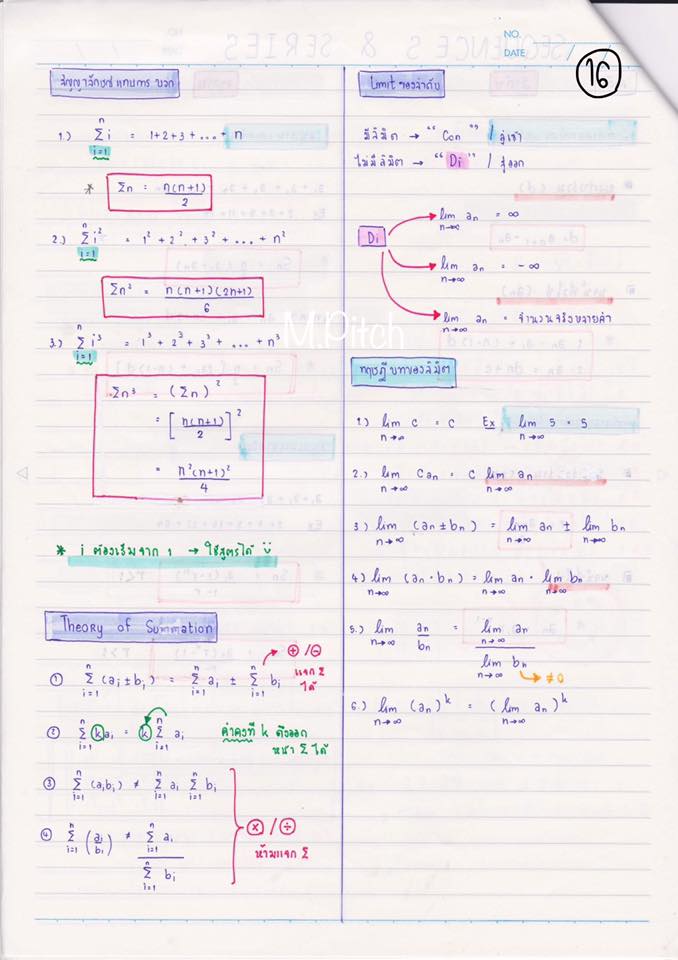 NO.
DATE
16
สัญญาลักษณ์แทนการ บวก
1.) n Σ i=1 i = 1+2+3+...+ n
* Σn = n(n+1) / 2
2.) n Σ i=1 i² = 1² + 2² + 3² + ... + n²
Σn² = n(n+1)(2n+1) / 6
3.) n Σ i=1 i³ = 1³ + 2³ + 3³ + ... + n³
Σn³ = (Σn)²
= [n(n+1) / 2]²
= n²(n+1)² / 4
* i ต้องเริ่มจาก 1 → ใช้สูตรได้
Theory of Summation
① n Σ i=1 (ai ± bi) = n Σ i=1 ai ± n Σ i=1 bi
⊕ / ⊖
แจก Σ
ได้
② n Σ i=1 kai = k n Σ i=1 ai
ค่าคงที่ k ดึงออก
หน้า Σ ได้
③ n Σ i=1 (aibi) ≠ n Σ i=1 ai n Σ i=1 bi
④ n Σ i=1 (ai / bi) ≠ n Σ i=1 ai / n Σ i=1 bi
⊗ / ⊕
ห้ามแจก Σ
Limit ของลำดับ
มีลิมิต → "Con" / ลู่เข้า
ไม่มีลิมิต → "Di" / ลู่ออก
Di
lim n→∞ an = ∞
lim n→∞ an = -∞
lim n→∞ an = จำนวนจริงหลายค่า
ทฤษฎีบทของลิมิต
1.) lim n→∞ c = c Ex lim n→∞ 5 = 5
2.) lim n→∞ Can = C lim n→∞ an
3.) lim n→∞ (an ± bn) = lim n→∞ an ± lim n→∞ bn
4.) lim n→∞ (an · bn) = lim n→∞ an · lim n→∞ bn
5.) lim n→∞ an / bn = lim n→∞ an / lim n→∞ bn
→ ≠0
6.) lim n→∞ (an)^k = (lim n→∞ an)^k
M.Pitch